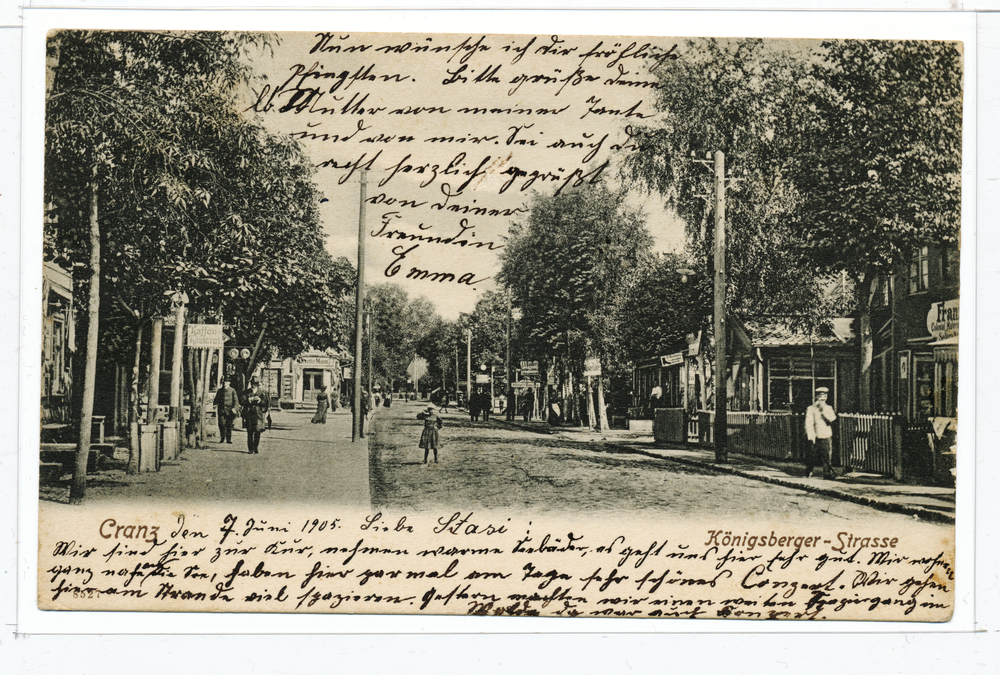 Nun wünsche ich Dir fröhliche
Pfingsten. Bitte grüße deine
lb. Mutter von meiner Tante
und von mir. Sei auch du
recht herzlich gegrüßt
von deiner
Freundin
Emma
Kaffee
Fran
Cranz den 7. Juni 1905. Liebe Stasi!
Königsberger-Strasse
Wir sind hier zur Kur, nehmen warme Seebäder, es geht uns hier sehr gut. Wir wohnen
ganz nahe die See, haben hier par mal am Tage sehr schönes Conzert. Wir gehen
hier am Strande viel spazieren. Gestern machten wir einen weiten Spaziergang im
Walde, da war auch Konzert.